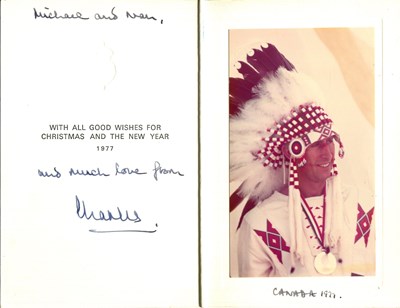 Michael and Jean,
WITH ALL GOOD WISHES FOR
CHRISTMAS AND THE NEW YEAR
1977
and much love from
Charles.
CANADA 1977.